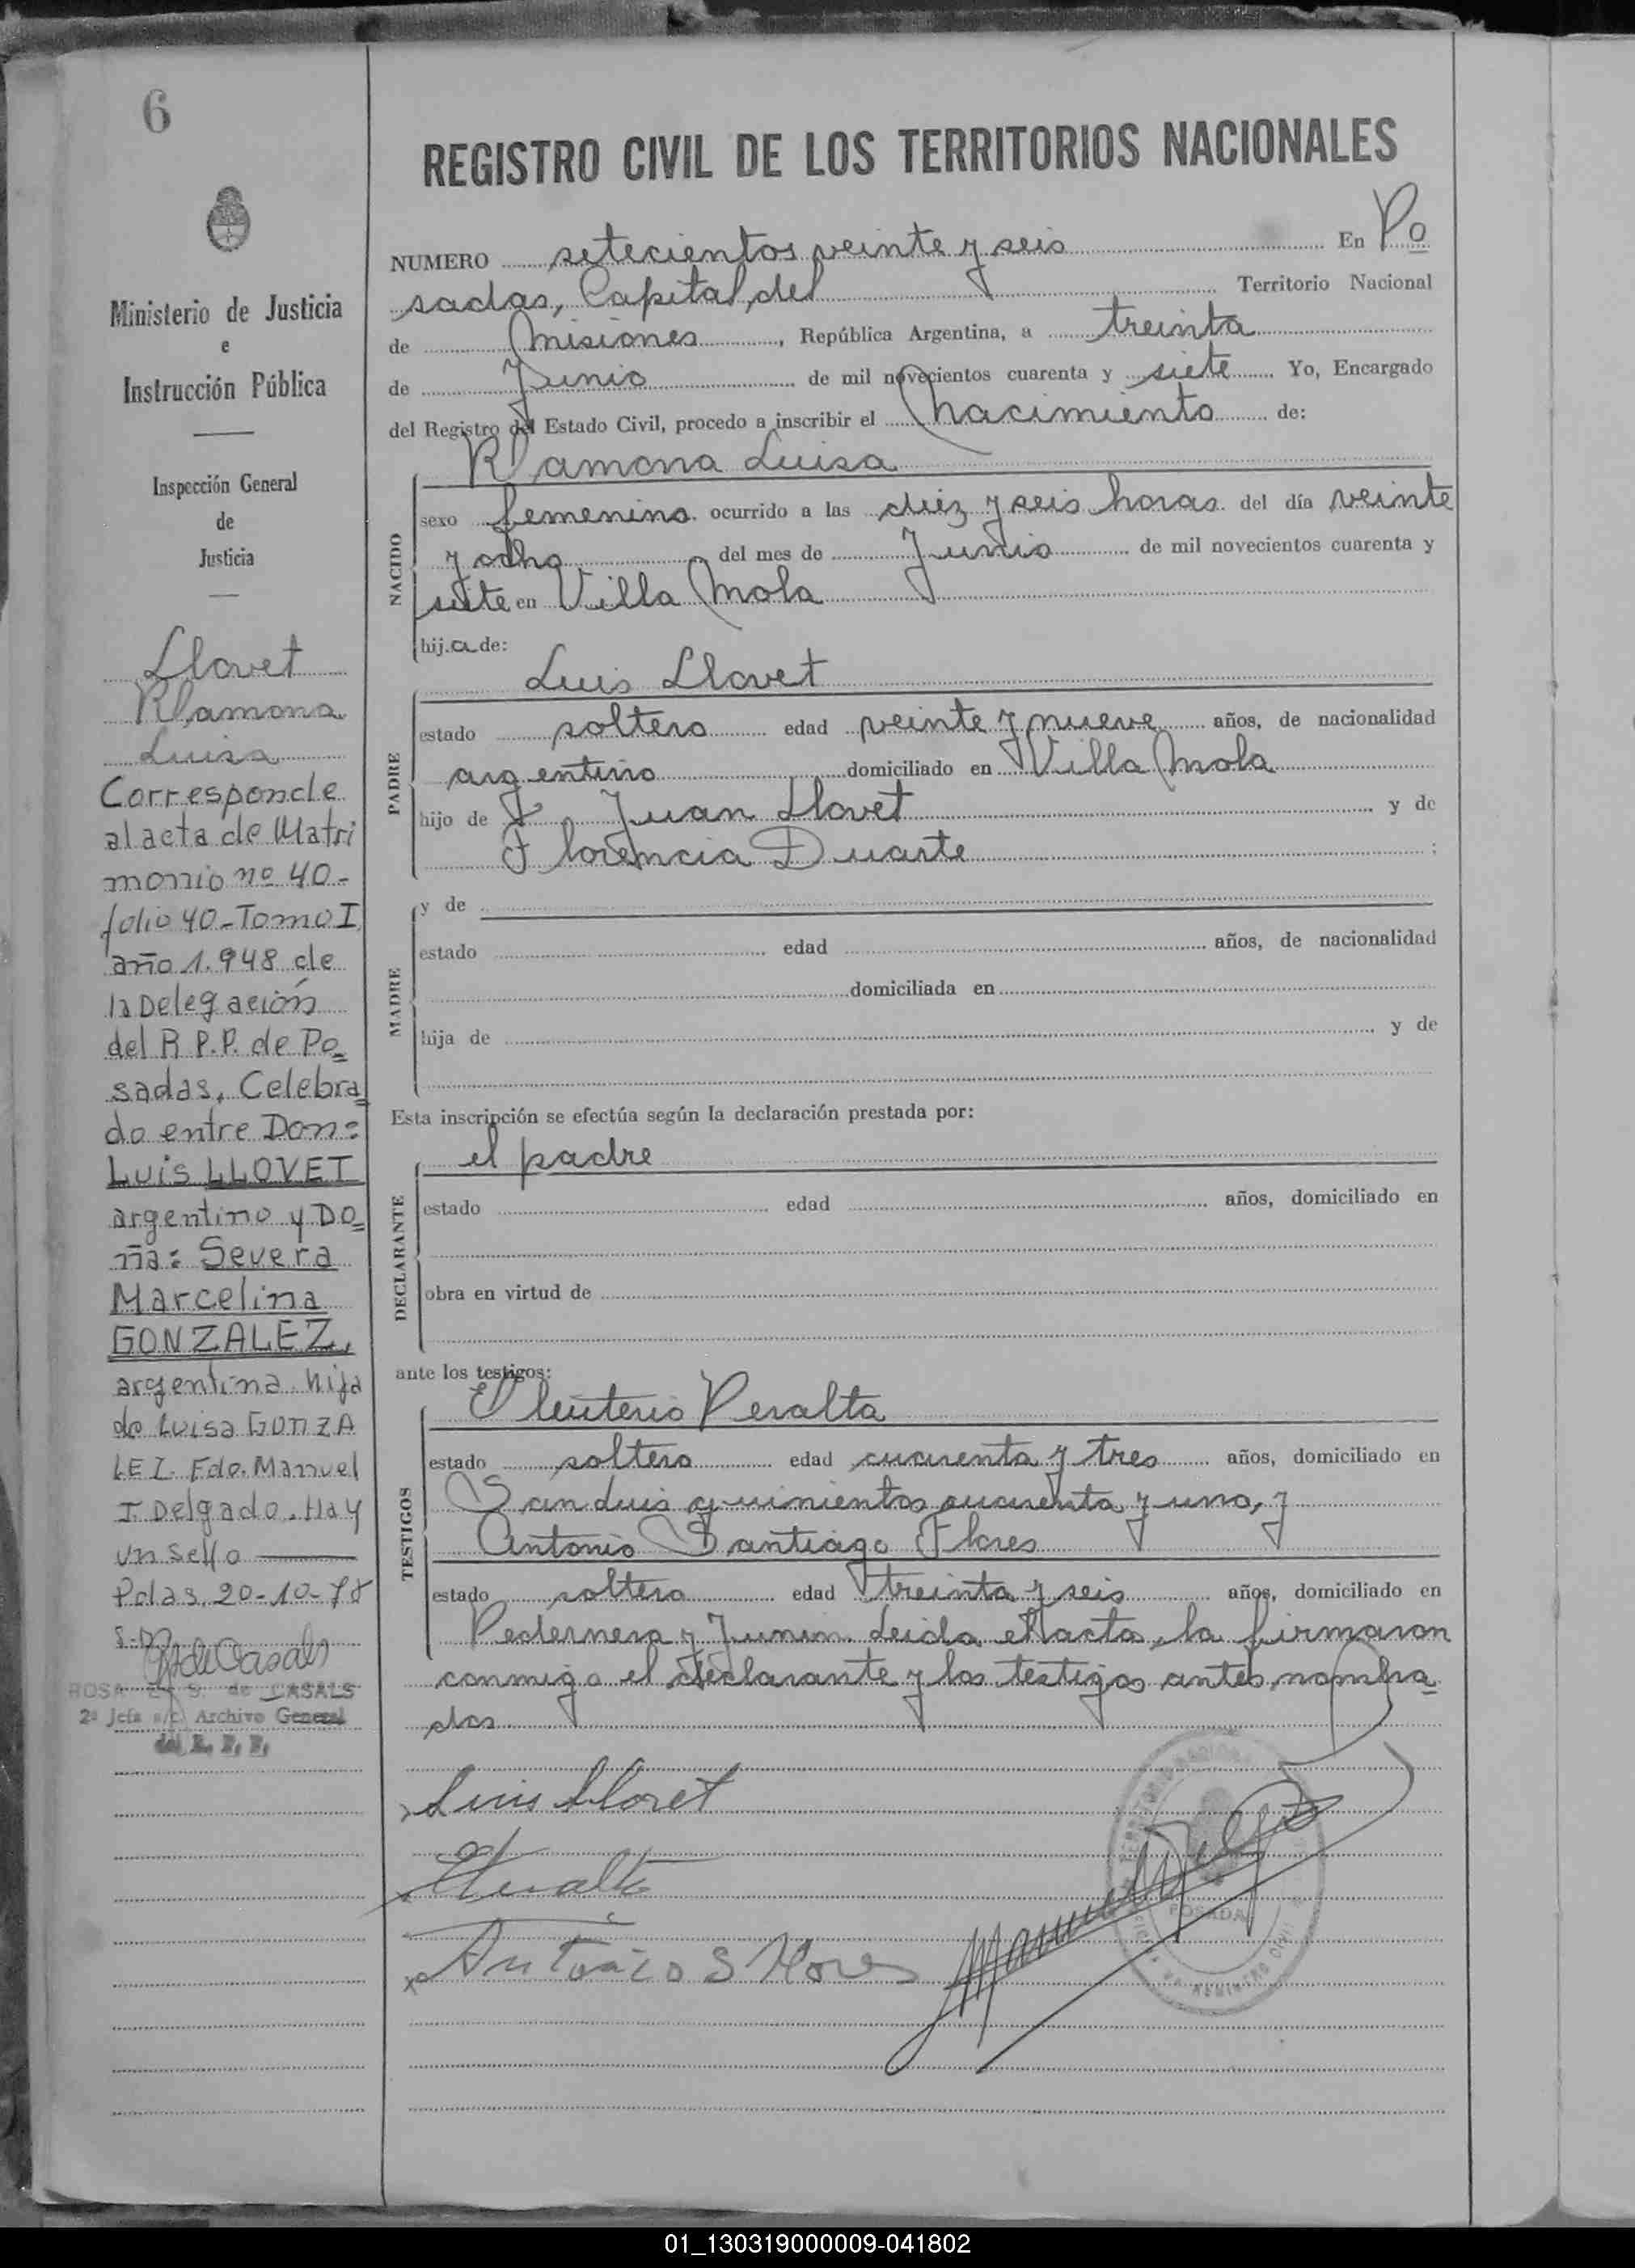 6
Ministerio de Justicia
e
Instrucción Pública
Inspección General
de
Justicia
Llovet
Ramona
Luisa
Corresponde
al acta de Matri
monio nº 40-
folio 40-Tomo I
año 1.948 de
la Delegación
del R.P.P. de Po=
sadas, Celebra=
do entre Don:
Luis LLOVET
argentino y Do=
ña: Severa
Marcelina
GONZALEZ,
argentina hija
de Luisa GONZA
LEZ. Fdo. Manuel
I. Delgado. Hay
un Sello
Pdas. 20-10-78
ROSA de CASALS
2ª Jefa a/c Archivo General
del R. P. P.
REGISTRO CIVIL DE LOS TERRITORIOS NACIONALES
NUMERO setecientos veinte y seis En Po
sadas, Capital, del Territorio Nacional
de Misiones, República Argentina, a treinta
de Junio de mil novecientos cuarenta y siete Yo, Encargado
del Registro del Estado Civil, procedo a inscribir el nacimiento de:
Ramona Luisa
NACIDO
sexo femenino ocurrido a las diez y seis horas del día veinte
y ocho del mes de Junio de mil novecientos cuarenta y
siete en Villa Mola
hija de:
Luis Llovet
PADRE
estado soltero edad veinte y nueve años, de nacionalidad
argentino domiciliado en Villa Mola
hijo de Juan Llovet y de
Florencia Duarte ;
MADRE
y de
estado edad años, de nacionalidad
domiciliada en
hija de y de
Esta inscripción se efectúa según la declaración prestada por:
el padre
DECLARANTE
estado edad años, domiciliado en
obra en virtud de
ante los testigos:
Eleuterio Peralta
TESTIGOS
estado soltero edad cuarenta y tres años, domiciliado en
San Luis quinientos cuarenta y uno, y
Antonio Santiago Flores
estado soltero edad treinta y seis años, domiciliado en
Pedernera y Junin. Leida el acta, la firmaron
conmigo el declarante y los testigos antes nombra=
dos
Luis Llovet
EPeralta
Antonio S Flores
POSADAS
01_130319000009-041802